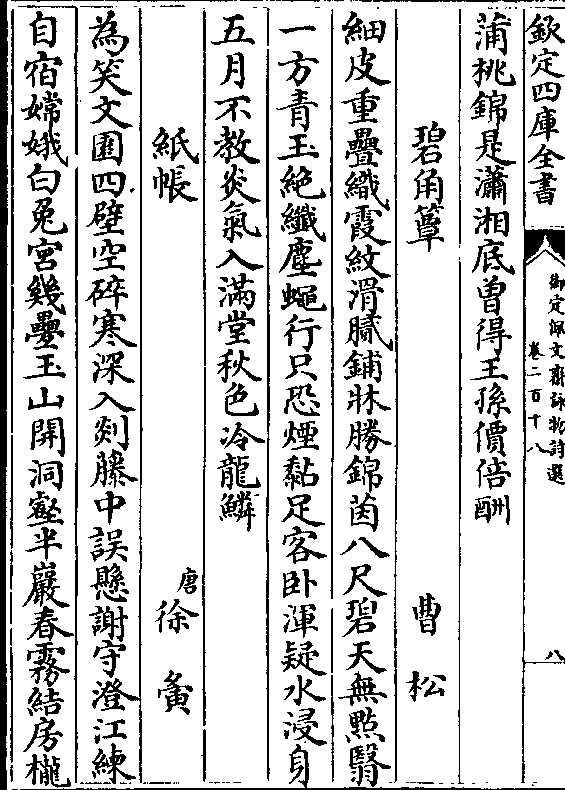 欽定四庫全書
御定佩文齋詠物詩選
卷二百十八
八
蒲桃錦是瀟湘底曽得王孫價倍酬
碧角簟
曹松
細皮重疊織霞紋滑膩鋪牀勝錦茵八尺碧天無點翳
一方青玉絶纎塵蠅行只恐煙黏足客卧渾疑水浸身
五月不教炎氣入滿堂秋色冷龍鱗
紙帳
唐
徐夤
為笑文園四壁空碎寒深入剡藤中誤懸謝守澄江練
自宿嫦娥白兎宮幾疊玉山開洞壑半巖春霧結房櫳